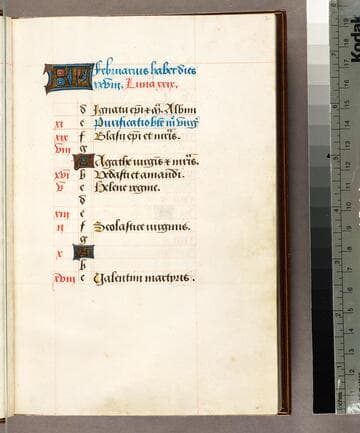 KL Februarius habet dies
xxviii. Luna xxix.
d Ignatii epi et m. Albini
xi e Purificatio bte m virgis
xix f Blasii epi et mris.
viii g
A Agathe virgis et mris.
xvi b Vedasti et amandi.
v c Helene regine.
d
xiii e
ii f Scolastice virginis.
g
x A
b
xviii c Valentini martyris.
Kodak